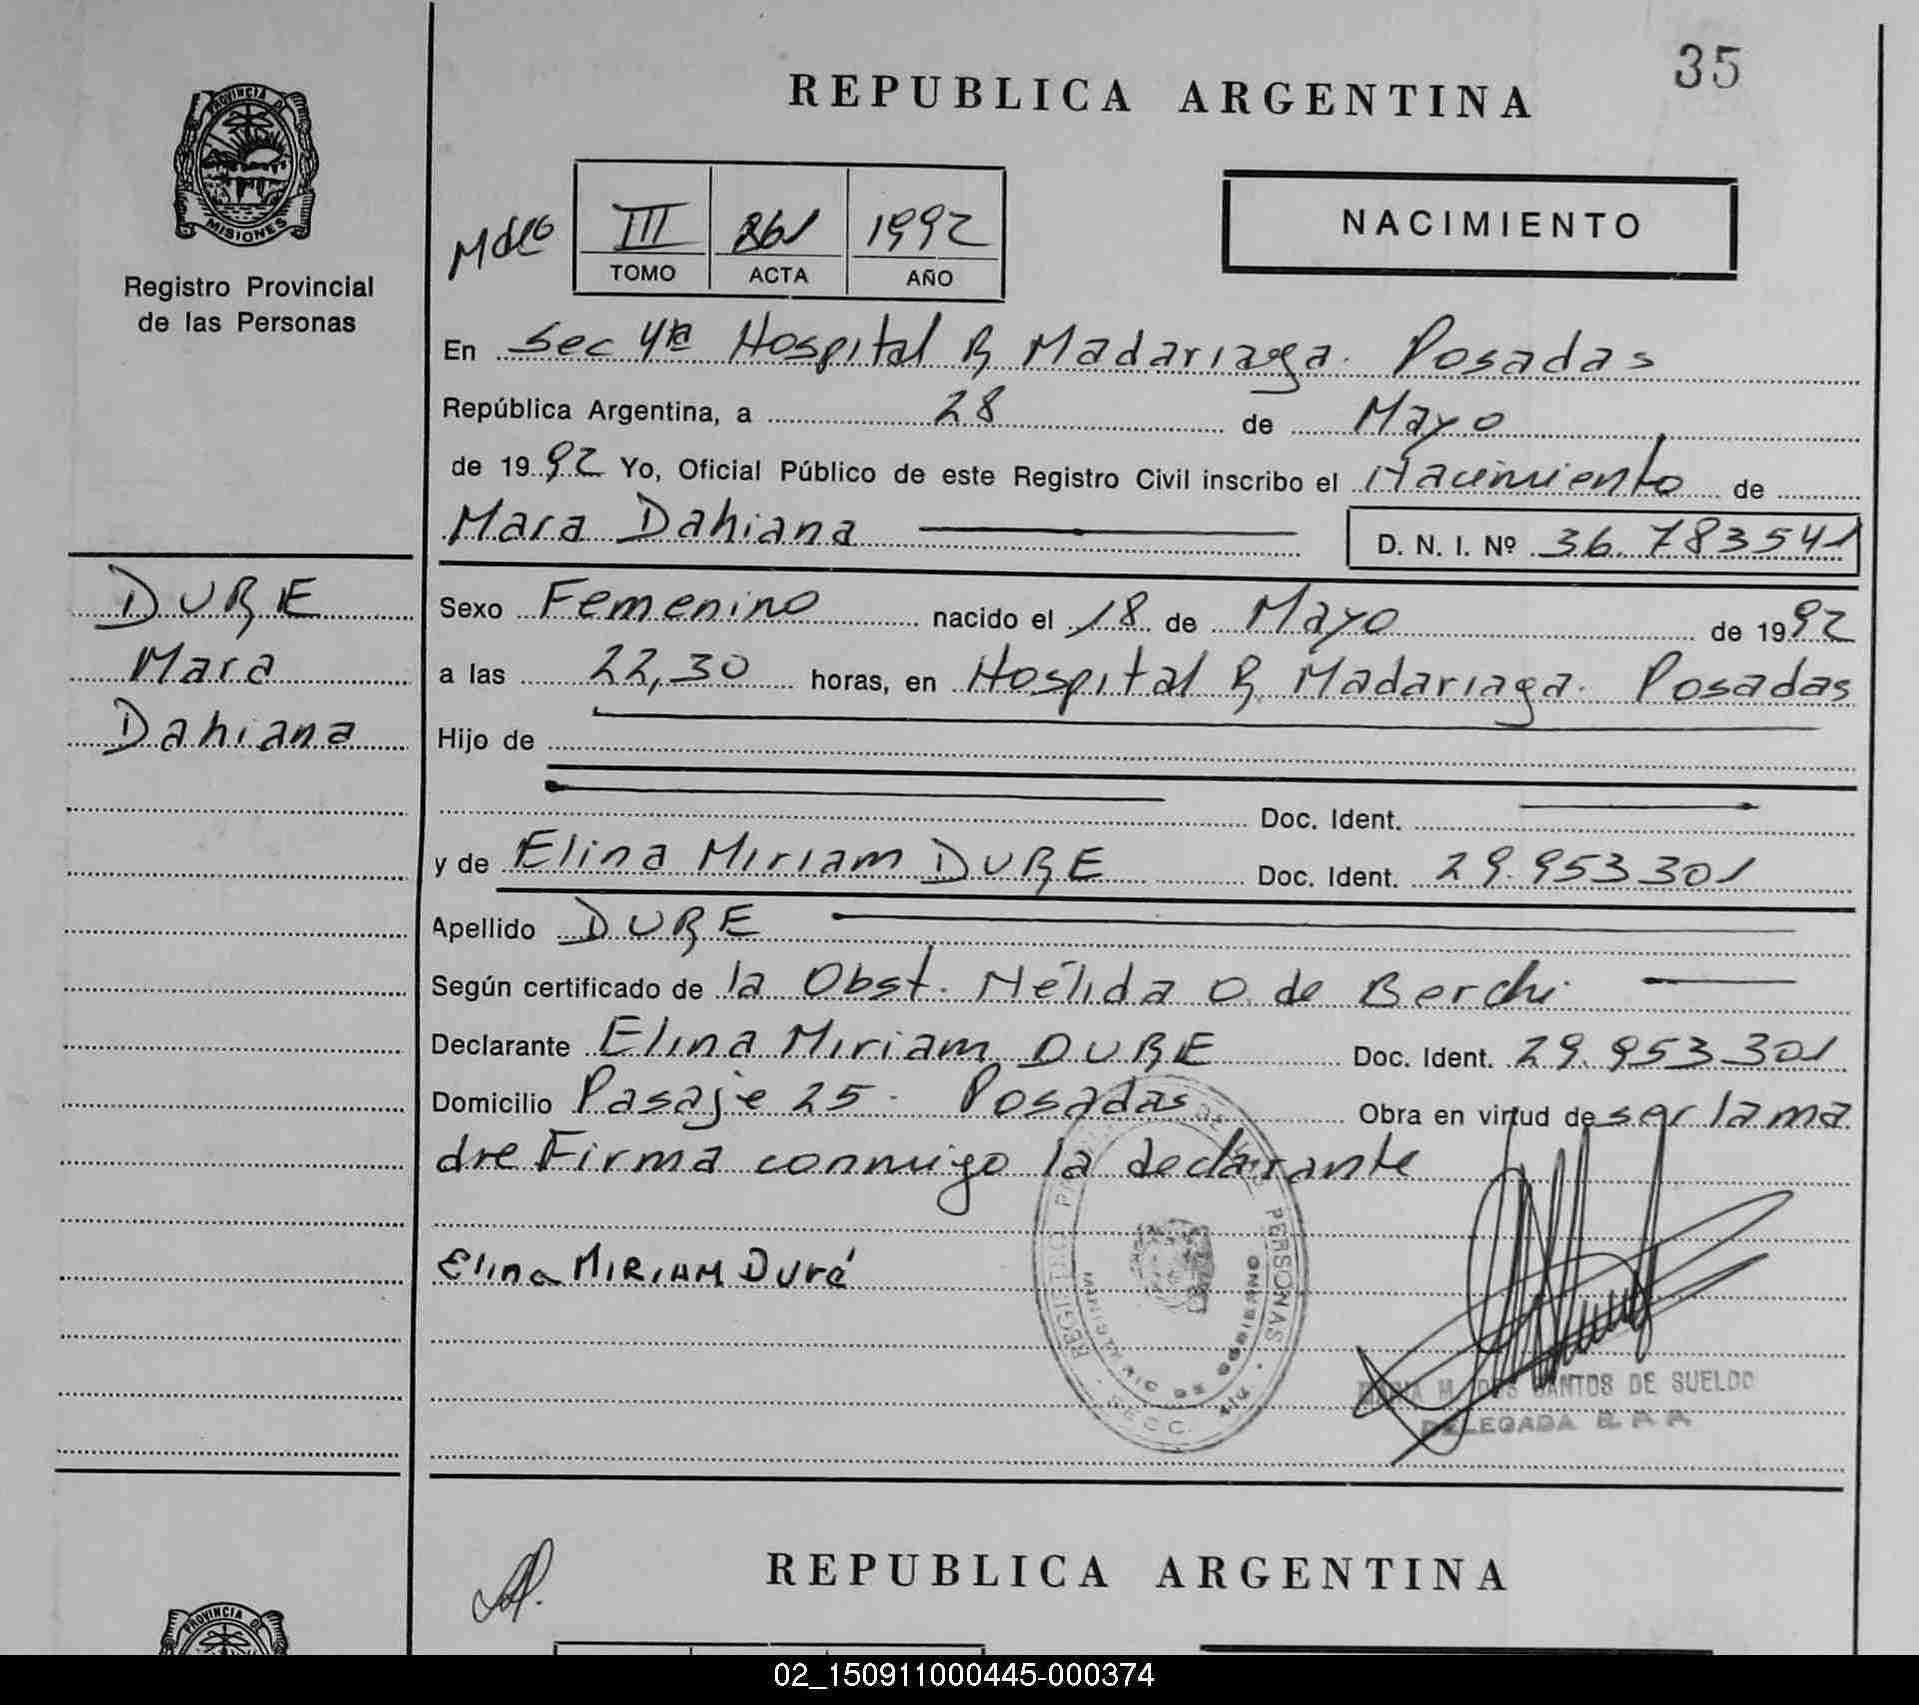 35
REPUBLICA ARGENTINA
PROVINCIA DE
MISIONES
Registro Provincial
de las Personas
III 261 1992
TOMO ACTA AÑO
NACIMIENTO
En Sec 4ta Hospital R Madariaga. Posadas
República Argentina, a 28 de Mayo
de 1992 Yo, Oficial Público de este Registro Civil inscribo el Nacimiento de
Mara Dahiana D. N. I. Nº 36.783541
DURE
Mara
Dahiana
Sexo Femenino nacido el 18 de Mayo de 1992
a las 22,30 horas, en Hospital R. Madariaga. Posadas
Hijo de
Doc. Ident.
y de Elina Miriam DURE Doc. Ident. 29.953301
Apellido DURE
Según certificado de la Obst. Nélida O. de Berchi
Declarante Elina Miriam DURE Doc. Ident. 29.953301
Domicilio Pasaje 25. Posadas Obra en virtud de ser la ma
dre Firma conmigo la declarante
Elina MIRIAM Duré
REGISTRO PERSONAS
MINISTERIO DE GOBIERNO
M. DOS SANTOS DE SUELDO
DELEGADA
REPUBLICA ARGENTINA
PROVINCIA DE
02_150911000445-000374